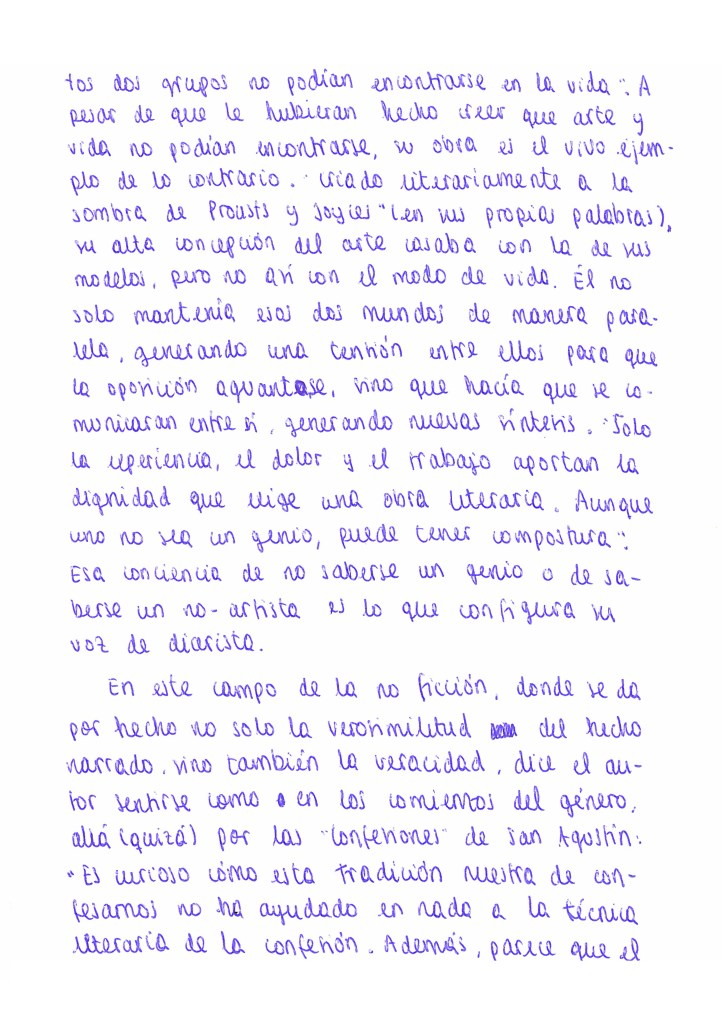 tos dos grupos no podían encontrarse en la vida". A
pesar de que le hubieran hecho creer que arte y
vida no podían encontrarse, su obra es el vivo ejem-
plo de lo contrario. Criado literariamente a la
sombra de Prousts y Joyces" (en sus propias palabras),
su alta concepción del arte casaba con la de sus
modelos, pero no así con el modo de vida. Él no
solo mantenía esos dos mundos de manera para-
lela, generando una tensión entre ellos para que
la oposición aguantase, sino que hacía que se co-
municaran entre sí, generando nuevas síntesis. "Solo
la experiencia, el dolor y el trabajo aportan la
dignidad que exige una obra literaria. Aunque
uno no sea un genio, puede tener compostura".
Esa conciencia de no saberse un genio o de sa-
berse un no-artista es lo que configura su
voz de diarista.
En este campo de la no ficción, donde se da
por hecho no solo la verosimilitud del hecho
narrado, sino también la veracidad, dice el au-
tor sentirse como en los comienzos del género,
allá (quizá) por las "Confesiones" de San Agustín:
"Es curioso cómo esta tradición nuestra de con-
fesarnos no ha ayudado en nada a la técnica
literaria de la confesión. Además, parece que el